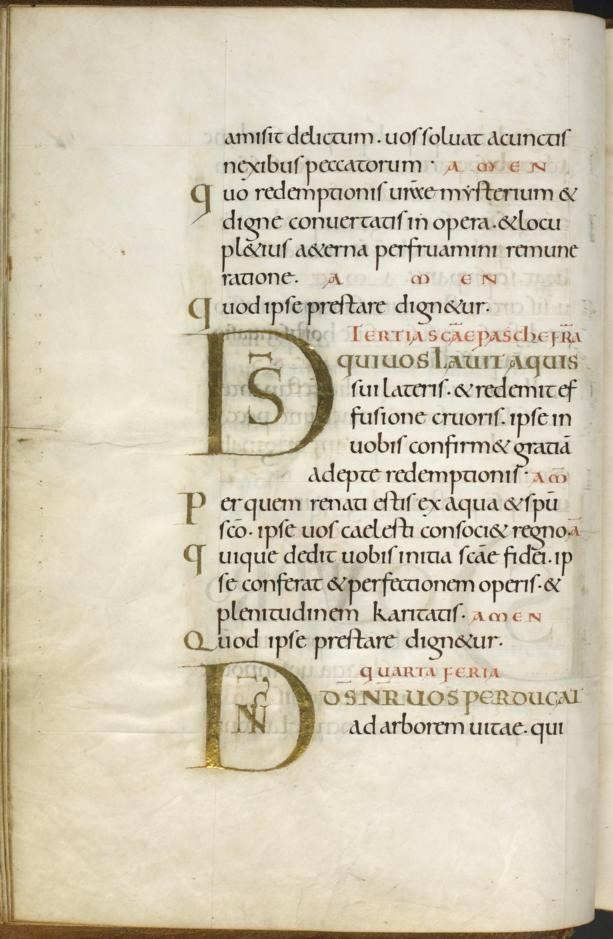 amisit delictum. uos soluat a cunctis
nexibus peccatorum. AMEN
quo redemptionis urae mysterium &
digne conuertatis in opera. & locu
pl&ius a&erna perfruamini remune
ratione. AMEN
quod ipse prestare dign&ur.
TERTIA SCAE PASCHE FRA
DS QUI UOS LAUIT AQUIS
sui lateris. & redemit ef
fusione cruoris. ipse in
uobis confirm& gratiā
adepte redemptionis. AM̄
Per quem renati estis ex aqua & spū
scō. ipse uos caelesti consoci& regno. Ā
quique dedit uobis initia scāe fidei. ip
se conferat & perfectionem operis. &
plenitudinem karitatis. AMEN
Quod ipse prestare dign&ur.
QUARTA FERIA
DN̄S DS̄ NR̄ UOS PERDUCAT
ad arborem uitae. qui